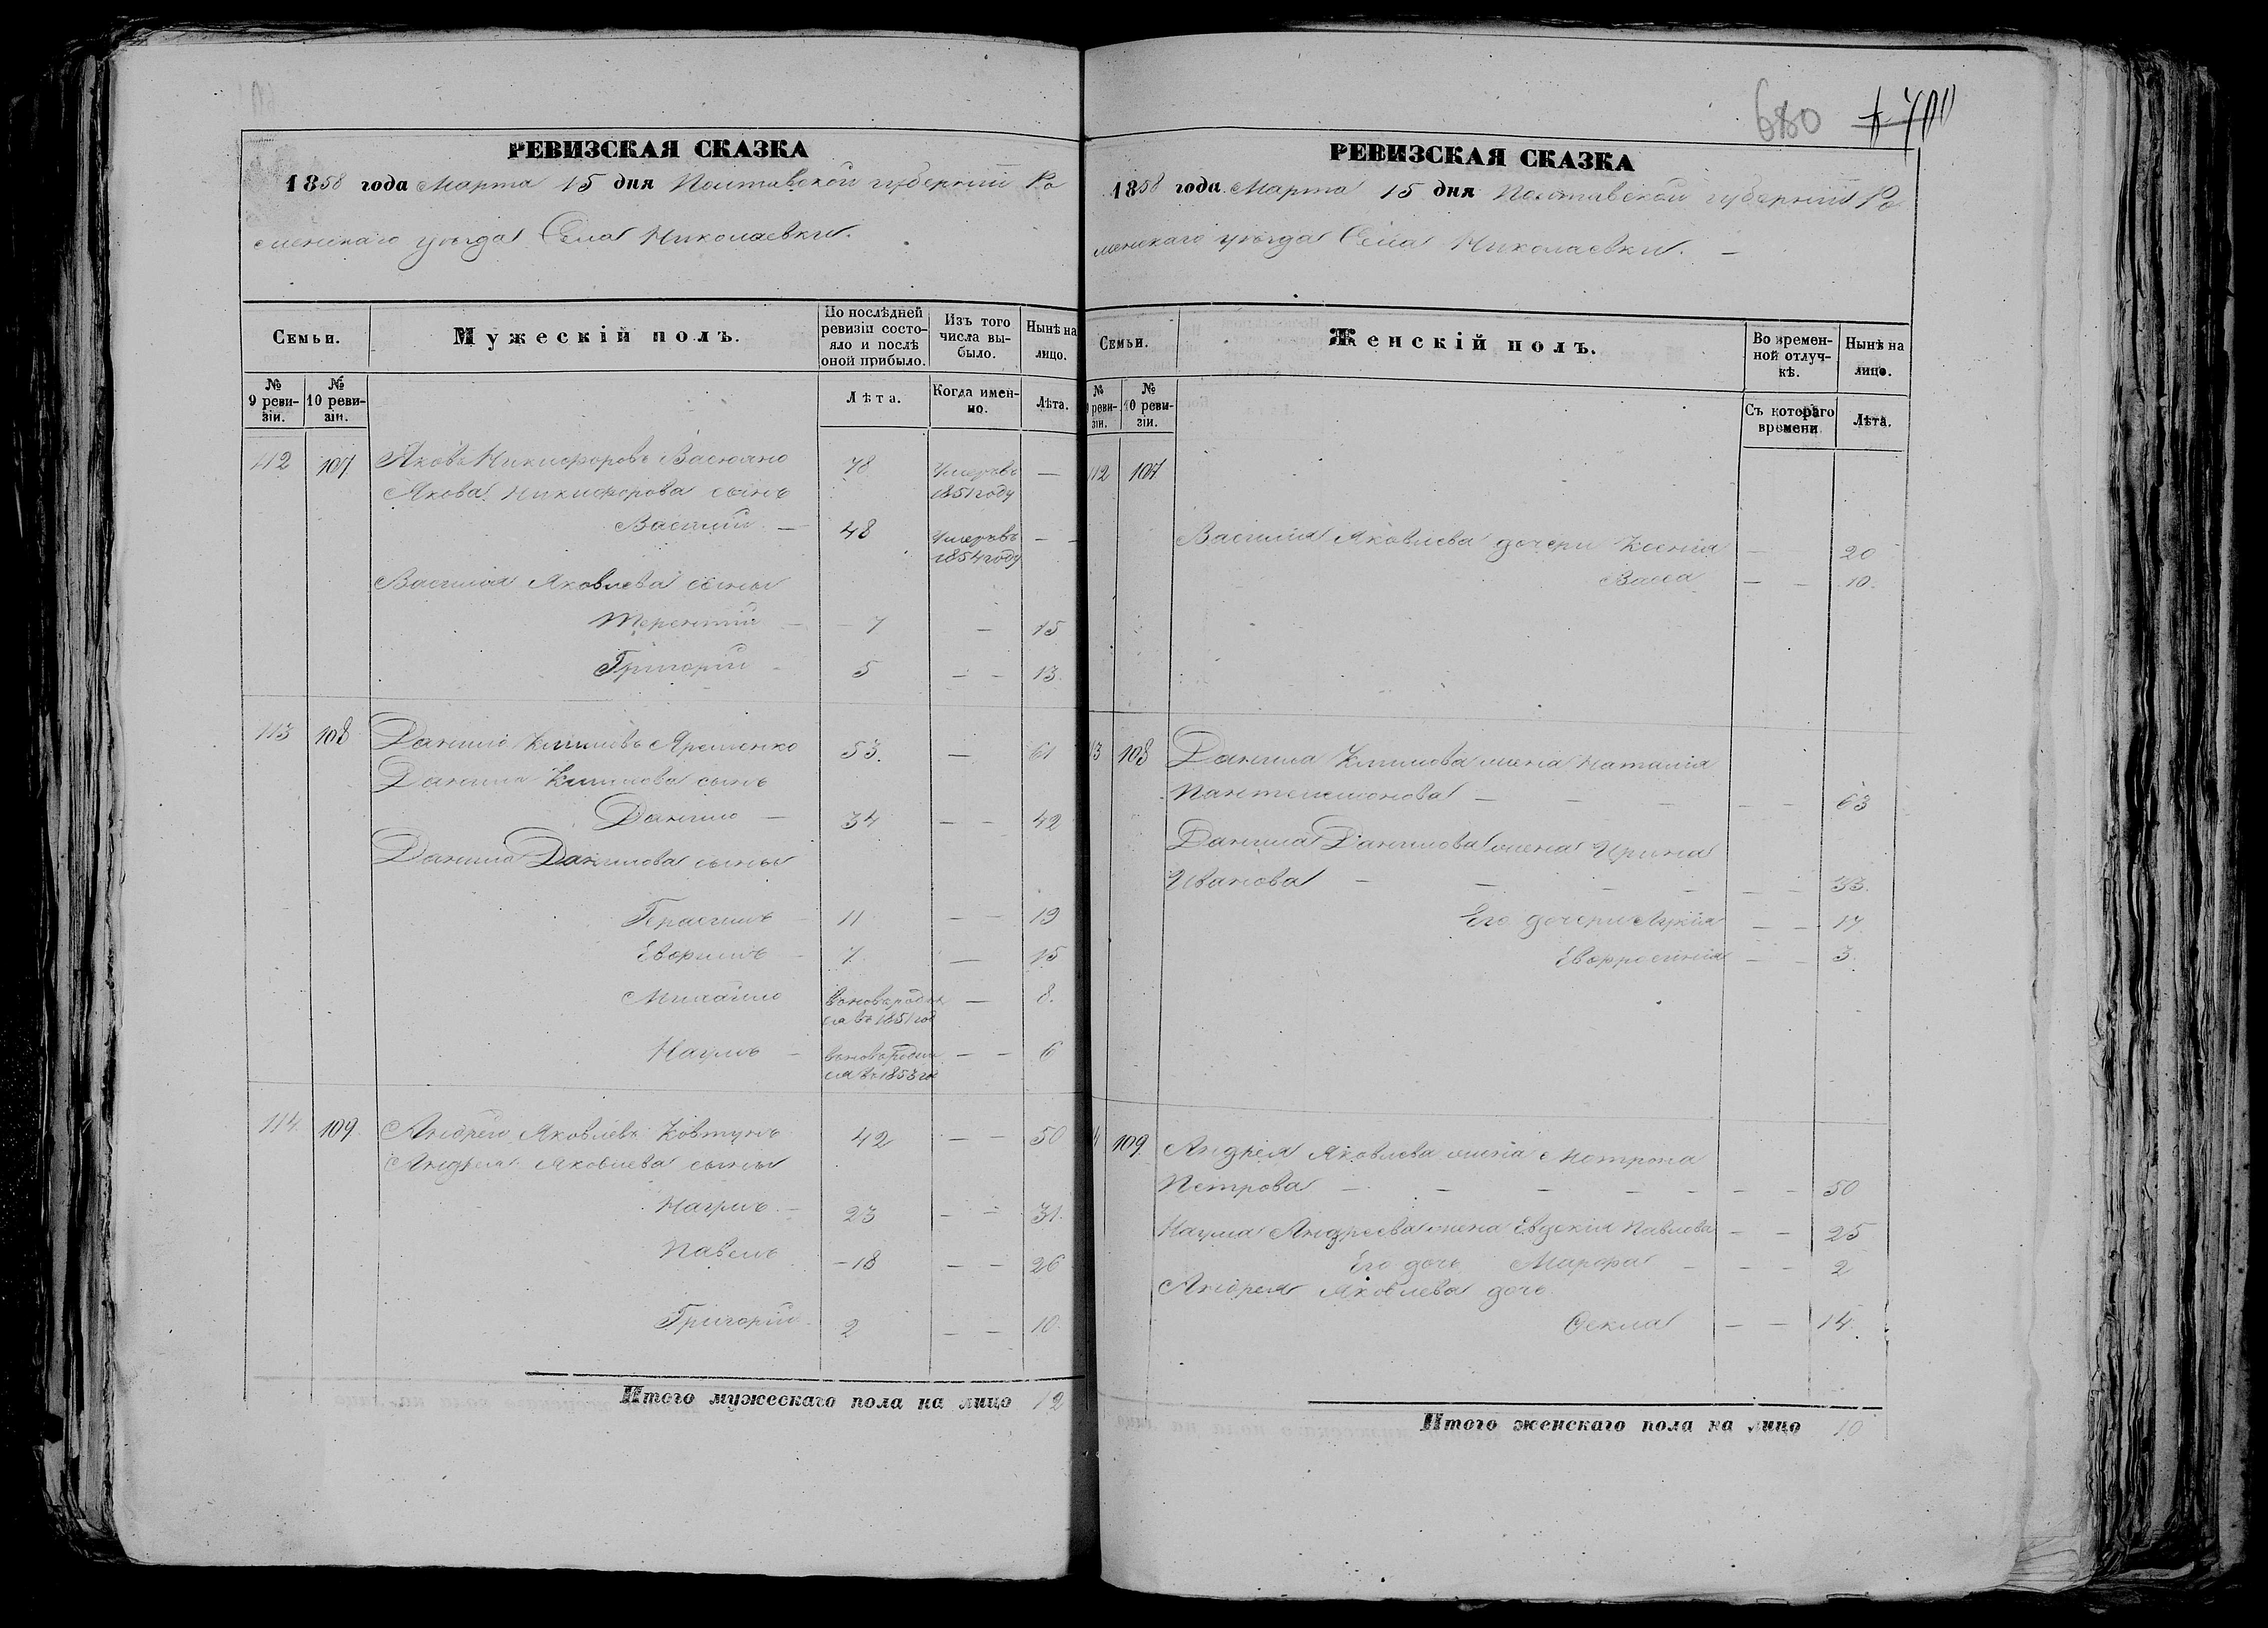 680 700
РЕВИЗСКАЯ СКАЗКА
1858 года Марта 15 дня Полтавской губернии Ро
менскаго уѣзда Села Николаевки.
Семьи.
Мужескій полъ.
По послѣдней ревизіи состояло и послѣ оной прибыло.
Изъ того числа выбыло.
Нынѣ на лицо.
№ 9 ревизіи.
№ 10 ревизіи.
Лѣта.
Когда именно.
Лѣта.
112 107 Яковъ Никифоровъ 78 Умеръ въ —
Якова Никифорова сынъ 1851 году
Василій — 48 Умеръ въ — —
1854 году
Василія Яковлева сыны
Терентій — 7 — 15
Григорій — 5 — — 13
113 108 Данило Климовъ Яременко 53. — 61
Данила Климова сынъ
Данило — 34 — — 42
Данила Данилова сыны
Герасимъ — 11 — — 19
Евфимъ — 7 — 15
Михайло вновь родил — 8.
ся въ 1851 год
Наумъ — вновь родил — — 6
ся въ 1853 го
114. 109. Андрей Яковлевъ Ковтунъ 42 — — 50
Андрея Яковлева сыны
Наумъ — 23 — — 31.
Павелъ — 18 — — 26
Григорій 2 — — 10.
Итого мужескаго пола на лицо 12
РЕВИЗСКАЯ СКАЗКА
1858 года Марта 15 дня Полтавской губерніи Ро
менскаго уѣзда Села Николаевки. —
Семьи.
Женскій полъ.
Во временной отлучкѣ.
Нынѣ на лицо.
№ реви-зіи.
№ 10 реви-зіи.
Съ котораго времени
Лѣта.
112 107
Василія Яковлева дочери Ксенія — 20
Васса — — 10.
13 108 Данила Климова жена Наталія
Пантелимонова — — — — — 63
Данила Данилова жена Ирина
Иванова — — — — — — 33.
Его дочери — — 17
Евфросинія — — 3.
4 109 Андрея Яковлева жена Мотрона
Петрова — — — — — — — 50
Наума Андреева жена Евдокія Павлова — — 25
Его дочь Марфа — — — 2
Андрея Яковлева дочь
Ѳекла — — 14.
Итого женскаго пола на лицо 10